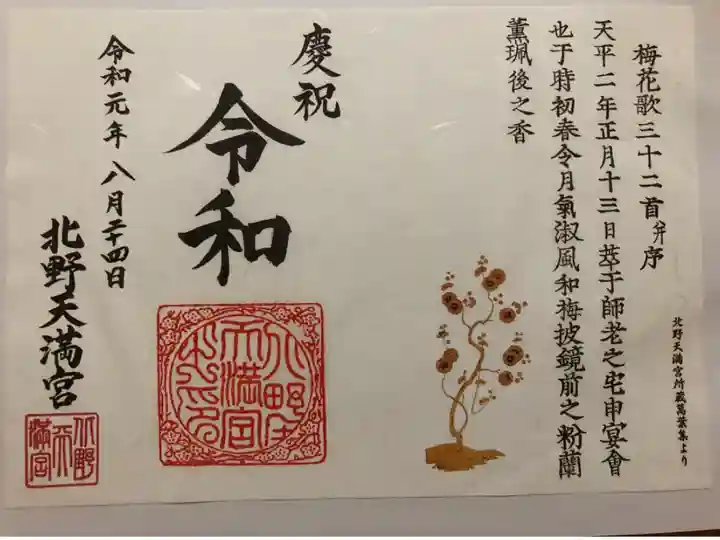 梅花歌三十二首并序
天平二年正月十三日萃于師老之宅申宴會
也于時初春令月氣淑風和梅披鏡前之粉蘭
薫珮後之香
北野天満宮所蔵萬葉集より
慶祝
令和
令和元年八月二十四日
北野天満宮
北野
天
満宮